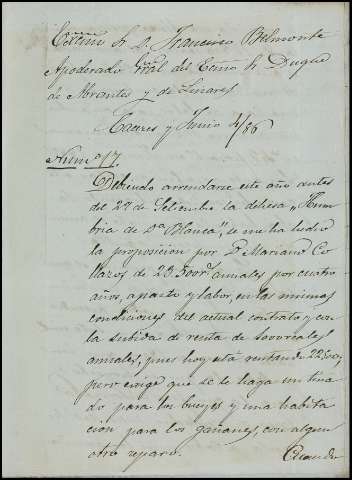 Excmo Sr D. Francisco Belmonte
Apoderado Gral del Exmo Sr Duque
de Abrantes y de Linares
Caceres y Junio 4/86
Num. 17
Debiendo arrendarse este año antes
del 29 de Setiembre la dehesa "Hum
bria de Da Blanca", se me ha hecho
la proposicion por D. Mariano Co
llazos de 23.500 rs. anuales por cuatro
años, a pasto y labor, en las mismas
condiciones del actual contrato y con
la subida de renta de reales
anuales, pues hoy está rentando 22.500,
pero exige que se le haga un tina
do para los bueyes y una habita
cion para los gañanes, con algun
otro reparo.
Cuando